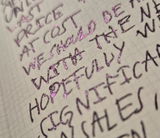 LAST
PRICE
AT COST
WE SHOULD BE
WITH THE NE
HOPEFULLY W
SIGNIFICA
N SALES,